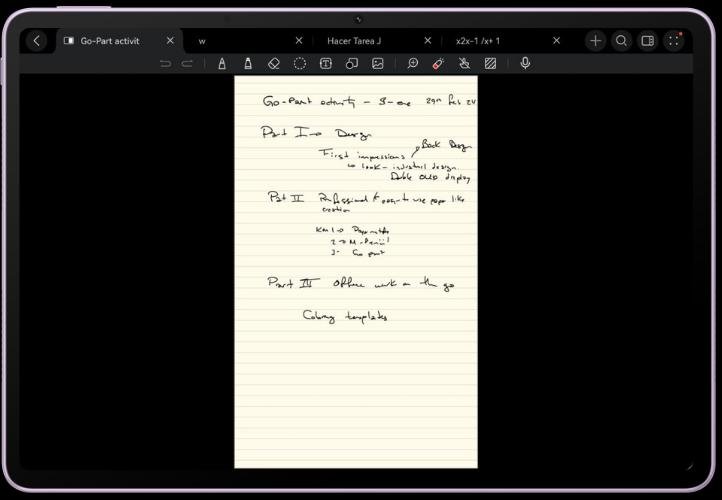 Go-Part activit
w
Hacer Tarea J
x2x-1 /x+ 1
Go-Part activity - 29th Feb 24
Part I → Design
Back Design
First impressions
↳ look - industrial design
Double OLED display
Part II Professional & easy to use paper like
creation
KSP 1 →
2 → M-Pencil
3- Go part
Part III Office work on the go
Coloring templates